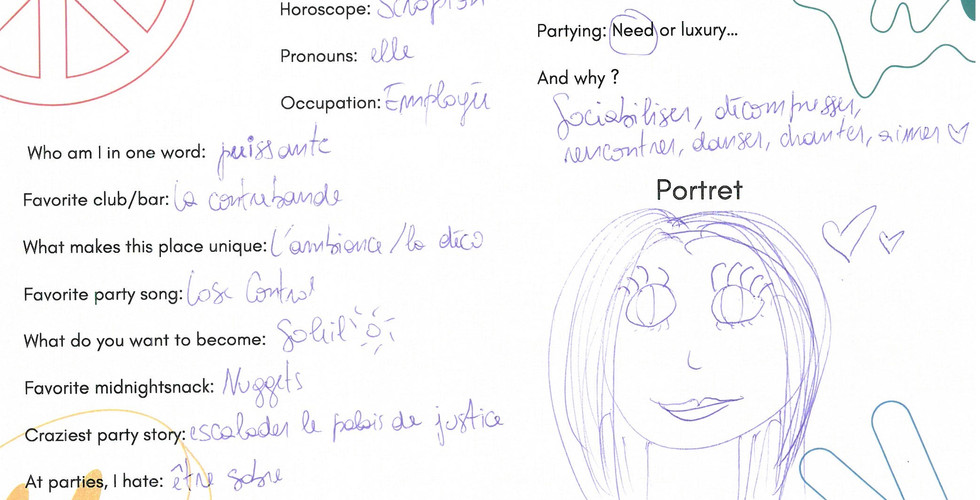 Horoscope: Scorpion
Pronouns: elle
Occupation: Employée
Who am I in one word: puissante
Favorite club/bar: la contrebande
What makes this place unique: L'ambiance / la déco
Favorite party song: Lose Control
What do you want to become: Soleil
Favorite midnightsnack: Nuggets
Craziest party story: escalader le palais de justice
At parties, I hate: être sobre
Partying: Need or luxury...
And why ?
Sociabiliser, décompresser,
rencontrer, danser, chanter, aimer
Portret